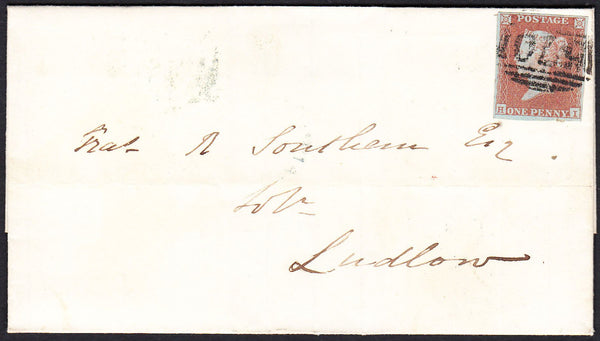 POSTAGE
ONE PENNY
R Southern Esq
Ludlow